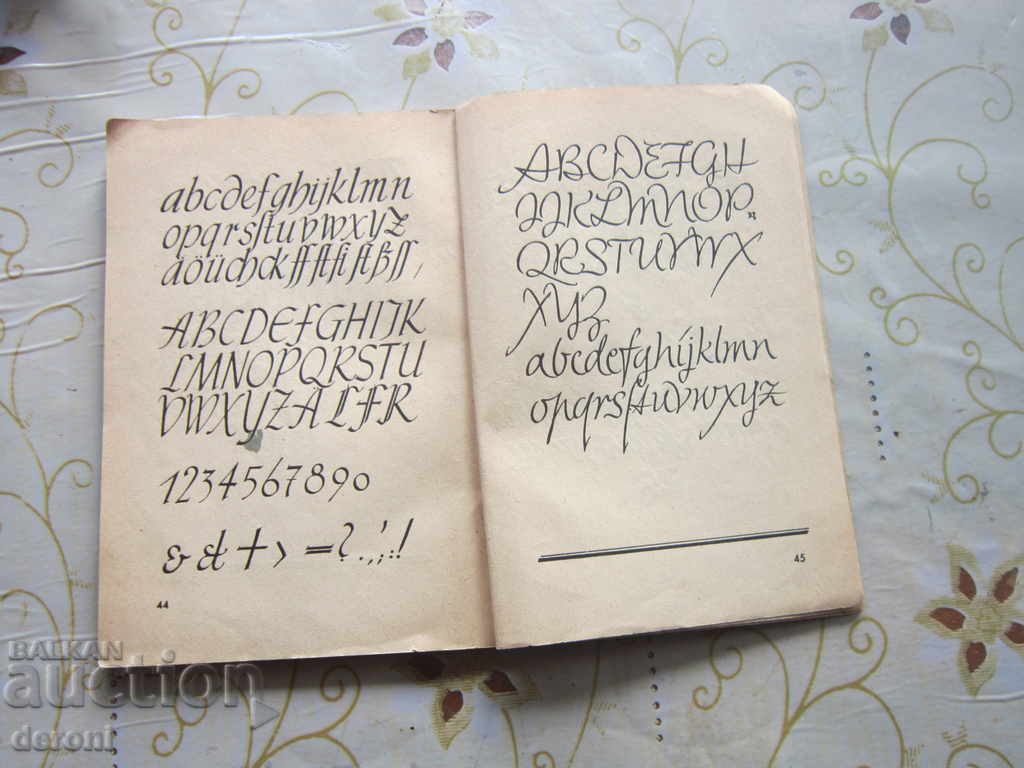 abcdefghijklmn
opqrsſtuvwxyz
äöüchckffſtſiſtßſſ,
ABCDEFGHIJK
LMNOPQRSTU
VWXYZALFR
1234567890
& & + › = ? . , ' ; . !
44
ABCDEFGH
IJKLMNOP
QRSTUVWX
XYZ
abcdefghijklmn
opqrsſtuvwxyz
45
BALKAN
auction
deroni